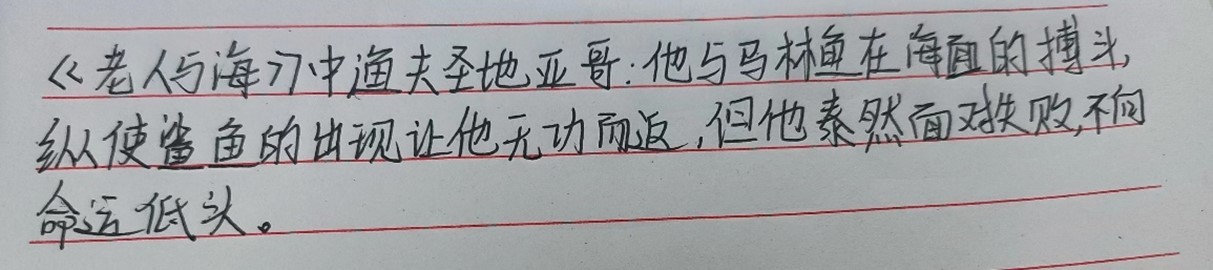 《老人与海》中渔夫圣地亚哥:他与马林鱼在海面的搏斗,
纵使鲨鱼的出现让他无功而返,但他泰然面对失败,不向
命运低头。